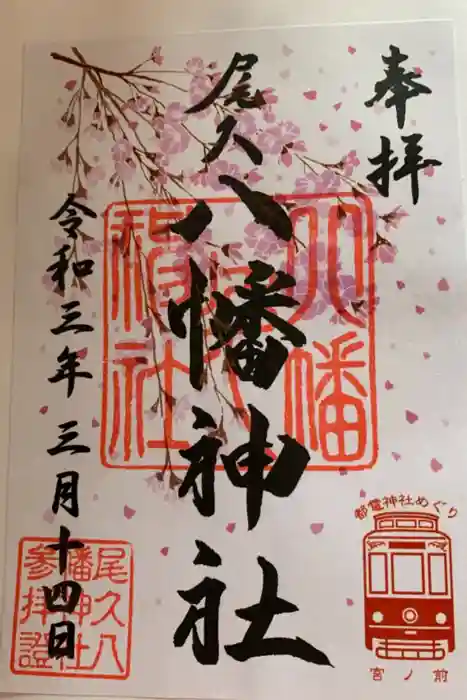 奉拝
尾久
八幡神社
令和三年三月十四日
八幡
神社
尾久八
幡神社
参拝證
都電神社めぐり
宮ノ前